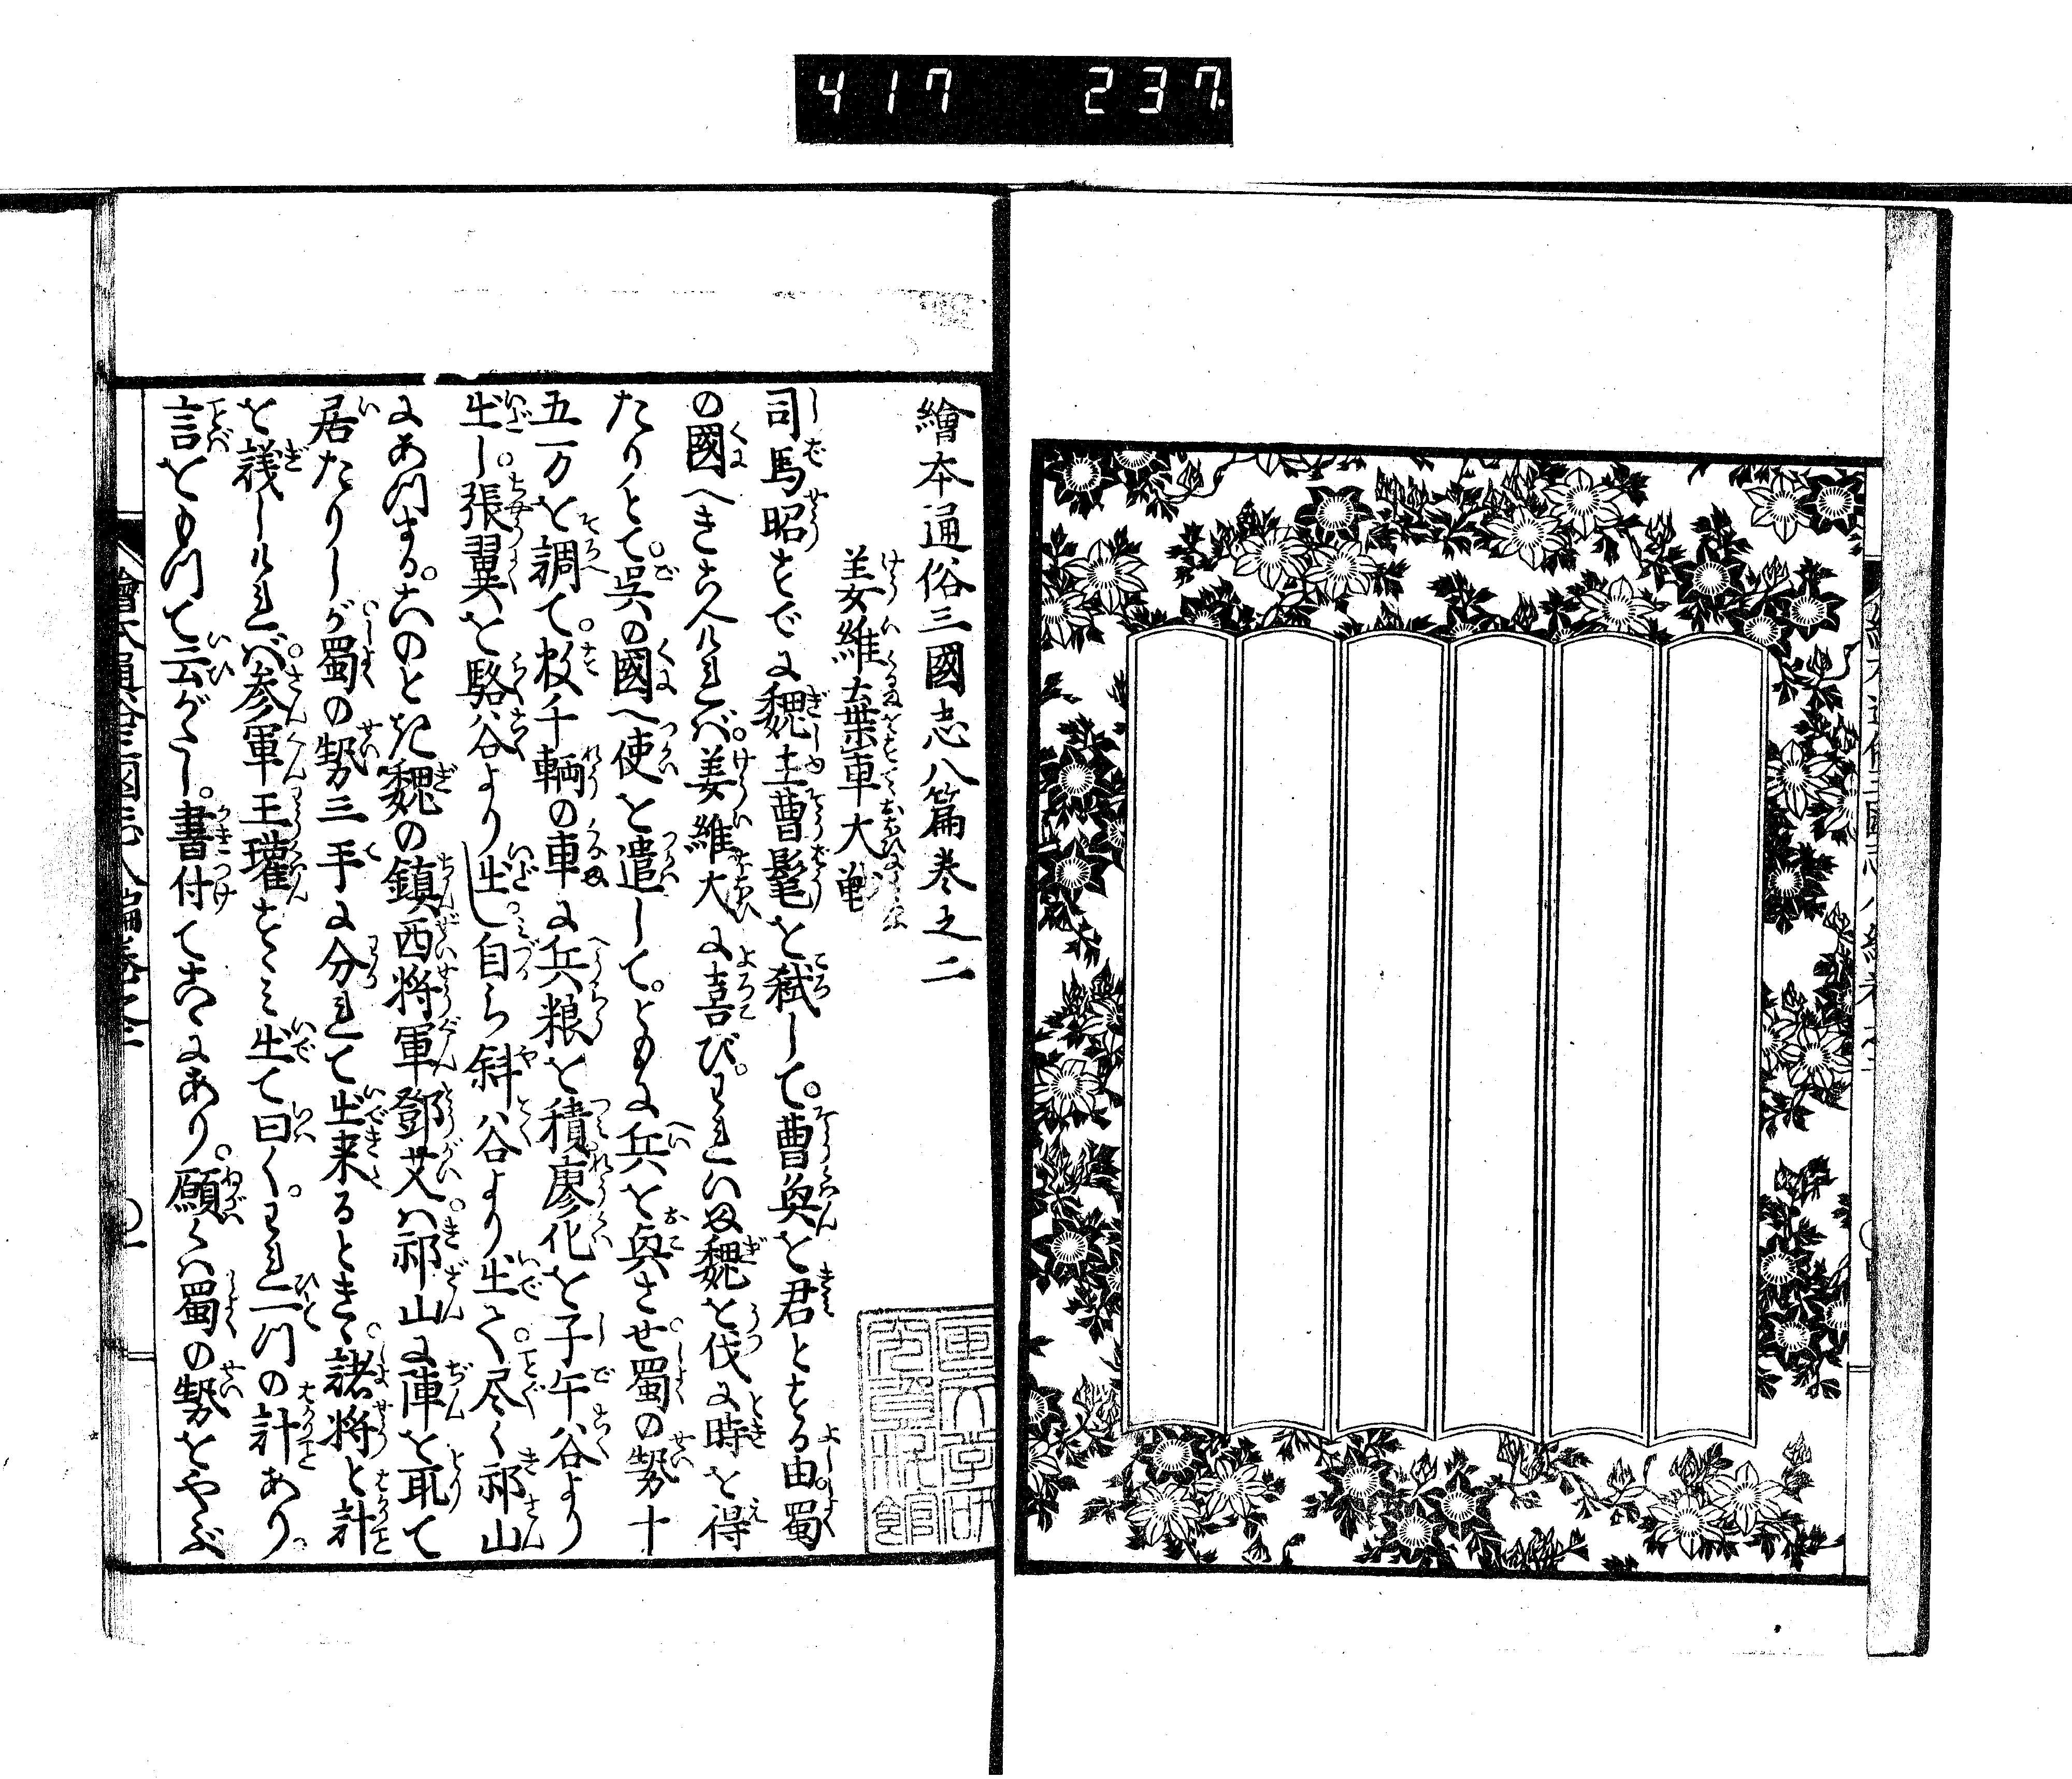 417 237
繪本通俗三國志八篇巻之二
姜維棄車大戦
司馬昭すでに魏主曹髦を弑して。曹奐を君とする由蜀
の國へきこえければ。姜維大に喜び。われいま魏を伐に時を得
たりとて。呉の國へ使を遣して。ともに兵を興させ。蜀の勢十
五万を調て。数千輌の車に兵粮を積。廖化を子午谷より
出し。張翼を駱谷より出し自ら斜谷より出て。尽く祁山
にあつまる。このとき魏の鎮西将軍鄧艾ハ祁山に陣を取て
居たりしが。蜀の勢三手に分れて出来るときゝ。諸将と計
を議しければ。参軍王瓘すゝみ出て曰く。われ一つの計あり。
言をもつて云がたし。書付てこゝにあり。願くハ蜀の勢をやぶ